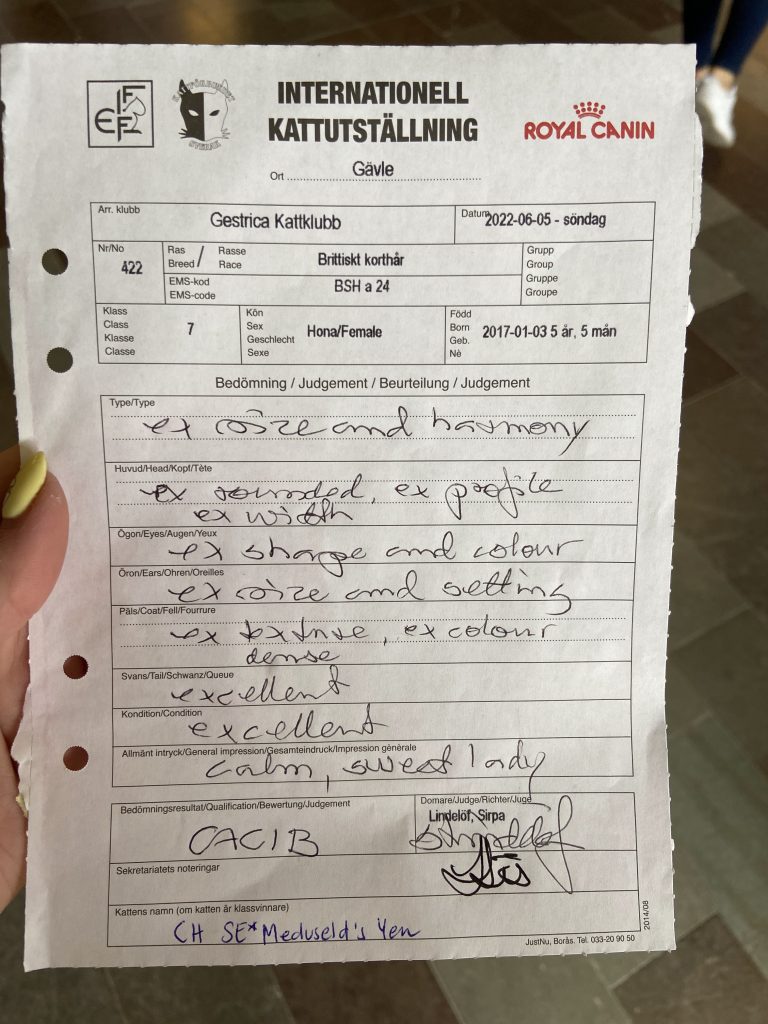 FIFE
SVERAK
INTERNATIONELL
KATTUTSTÄLLNING
ROYAL CANIN
Ort Gävle
Arr. klubb
Gestrica Kattklubb
Datum 2022-06-05 - söndag
Nr/No
422
Ras / Rasse
Breed / Race
Brittiskt korthår
EMS-kod
EMS-code
BSH a 24
Grupp
Group
Gruppe
Groupe
Klass
Class
Klasse
Classe
7
Kön
Sex
Geschlecht
Sexe
Hona/Female
Född
Born
Geb.
Nè
2017-01-03 5 år, 5 mån
Bedömning / Judgement / Beurteilung / Judgement
Type/Type
ex size and harmony
Huvud/Head/Kopf/Tète
ex rounded, ex profile
ex width
Ögon/Eyes/Augen/Yeux
ex shape and colour
Öron/Ears/Ohren/Oreilles
ex size and setting
Päls/Coat/Fell/Fourrure
ex texture, ex colour
dense
Svans/Tail/Schwanz/Queue
excellent
Kondition/Condition
excellent
Allmänt intryck/General impression/Gesamteindruck/Impression gènèrale
calm, sweet lady
Bedömningsresultat/Qualification/Bewertung/Judgement
CACIB
Domare/Judge/Richter/Juge
Lindelöf, Sirpa
Sekretariatets noteringar
Kattens namn (om katten är klassvinnare)
CH SE*Meduseld's Yen
JustNu, Borås. Tel. 033-20 90 50
2014/08